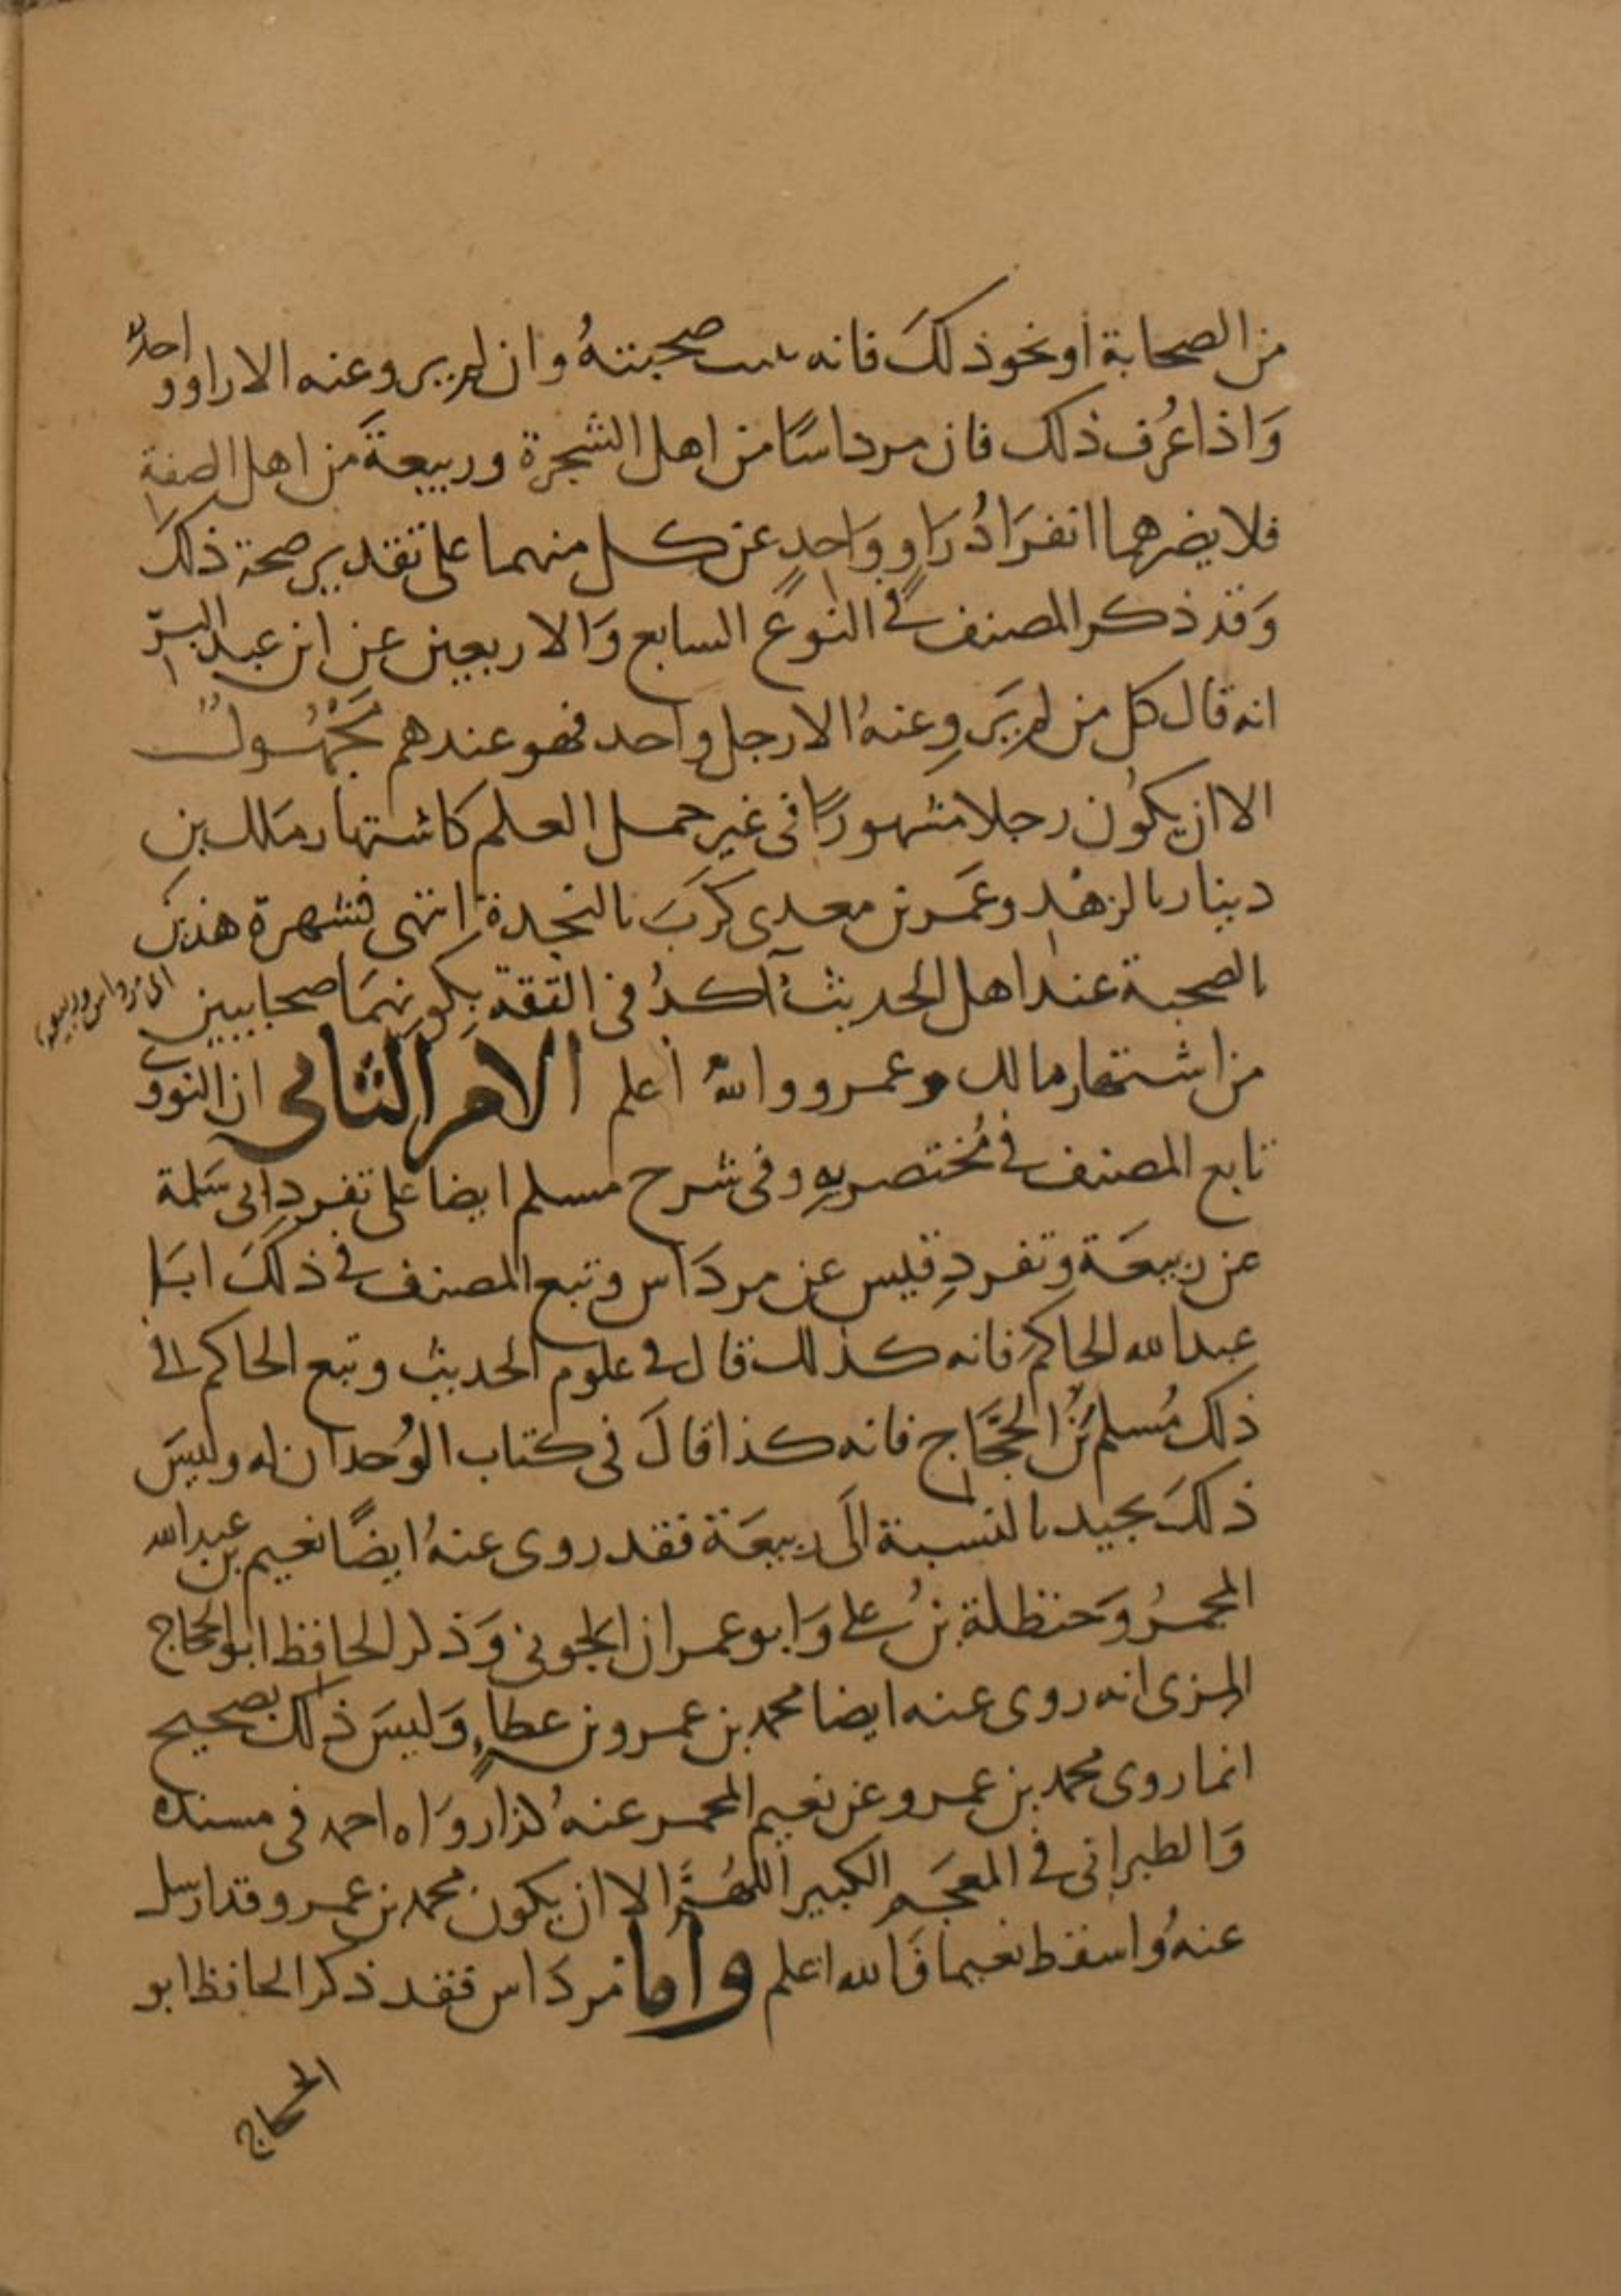 من الصحابة أو نحو ذلكَ فانه تثبت صحبتهُ وان لم يرو عنه الا راو واحدٌ
وَاذا عُرف ذلك فان مرداسًا من اهل الشجرة وربيعةَ من اهل الصفة
فلا يضرهما انفرَادُ رَاوٍ وَاحدٍ عن كل منهما على تقدير صحة ذلكَ
وَقد ذكر المصنف في النوع السابع وَالاربعين عن ابن عبد البرّ
انه قال كل من لم يَروِ عنهُ الا رجل واحد فهو عندهم مَجْهُولٌ
الا ان يكُون رجلا مشهورًا في غير حمل العلم كاشتهار مَلك بن
دينار بالزهْد وعَمرو بن معدى كرَبَ بالنجدة انتهى فشهرة هذين
بالصحبة عند اهل الحديث آكدُ في الثقة بكونهمَا صحابيين
اى مرداس وربيعة
من اشتهار مالك وعمرو والله أعلم الامر الثاني ان النووي
تابع المصنف في مُختصريهِ وفى شرح مسلم ايضا على تفردِ ابى سَلمة
عن ربيعَة وتفردِ قيس عن مردَاس وتبع المصنف في ذلكَ ابَا
عبد الله الحاكم فانه كذلك قال في علوم الحديث وتبع الحاكم في
ذلك مُسلم بنُ الحجَّاج فانه كذا قالَ فى كتاب الوُحدان له وليسَ
ذلكَ بجيد بالنسبة الَى ربيعَة فقد روى عنهُ ايضًا نعيم بن عبد الله
المجمرُ وَحنظلة بنُ على وَابو عمران الجونى وَذكر الحافظ ابو الحجاج
المزى انه روى عنه ايضا محمد بن عمرو بن عطاءٍ وَليسَ ذلك بصحيح
انما روى محمد بن عمرو عن نعيم المجمر عنهُ كذا روَاه احمد فى مسنده
وَالطبرانى في المعجَم الكبير اللهُمَّ الا ان يكون محمد بن عمرو قد ارسل
عنهُ واسقط نعيما فَالله اعلم وأما مردَاس فقد ذكر الحافظ ابو
الحجاج